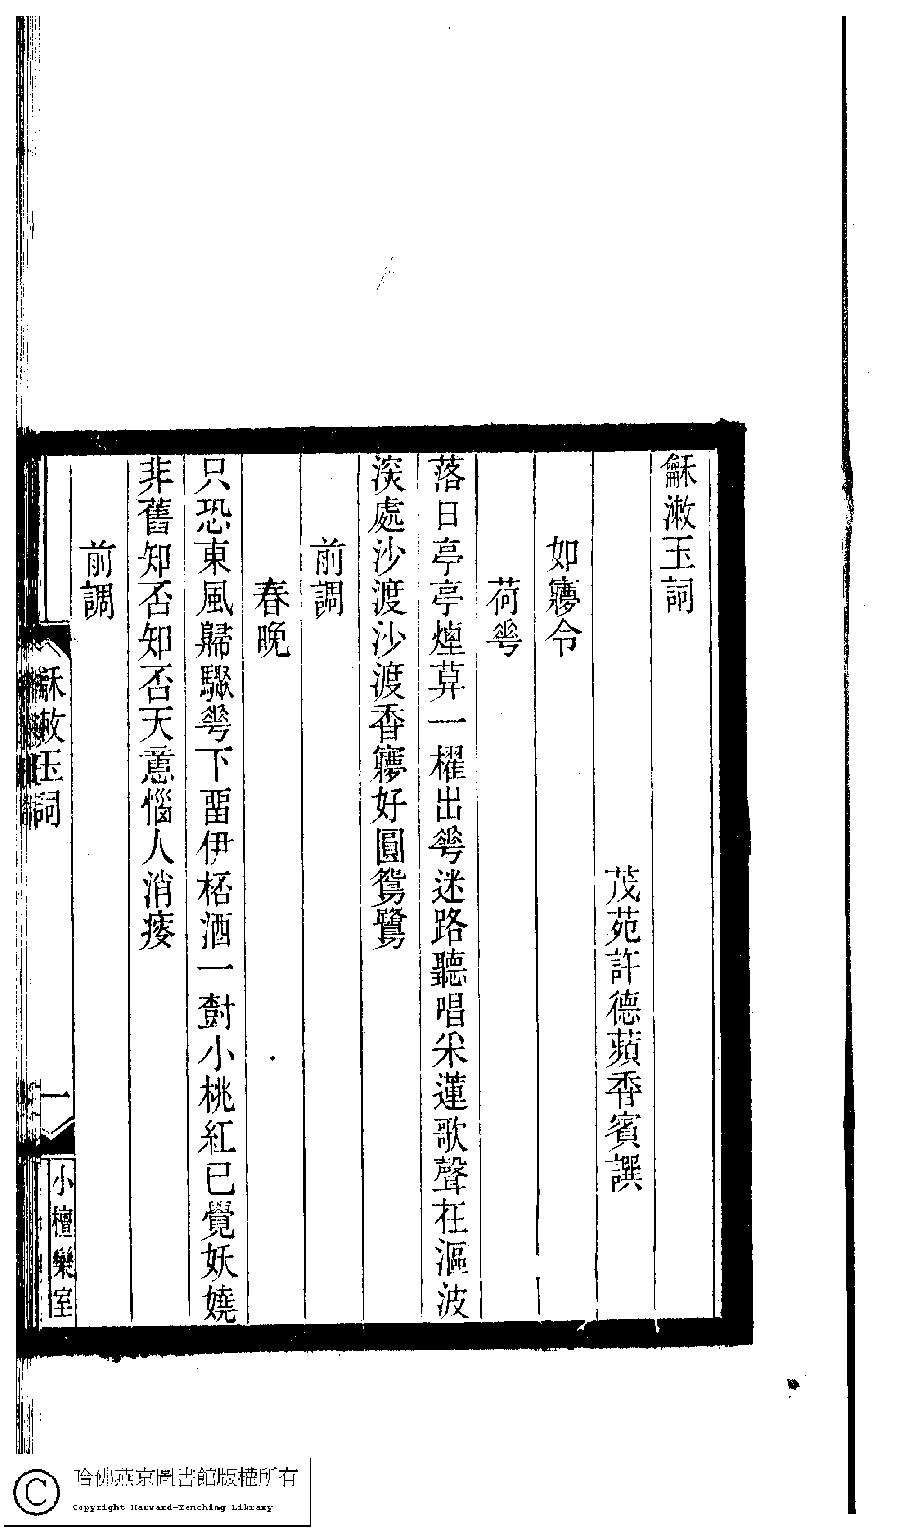 龢漱玉詞
茂苑許德蘋香賓譔
如㝱令
荷蕚
落日亭亭煙萛一櫂出蕚迷路聽唱采蓮歌聲在漚波
湥處沙渡沙渡香㝱好圓鴛鷺
前調
春晚
只恐東風歸驟蕚下畱伊桮酒一對小桃紅已覺妖嬈
非舊知否知否天意惱人消痿
前調
龢漱玉詞
一
小檀欒室
哈佛燕京圖書館版權所有
Copyright Harvard-Yenching Library